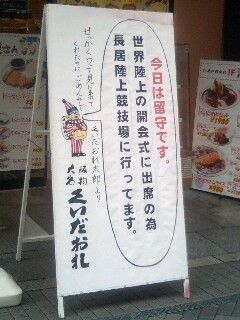 今日は留守です。
世界陸上の開会式に出席の為
長居陸上競技場に行ってます。
せっかく会って見に来て
くれたのにごめんネ。
くいだおれ太郎より
大阪名物
くいだおれ